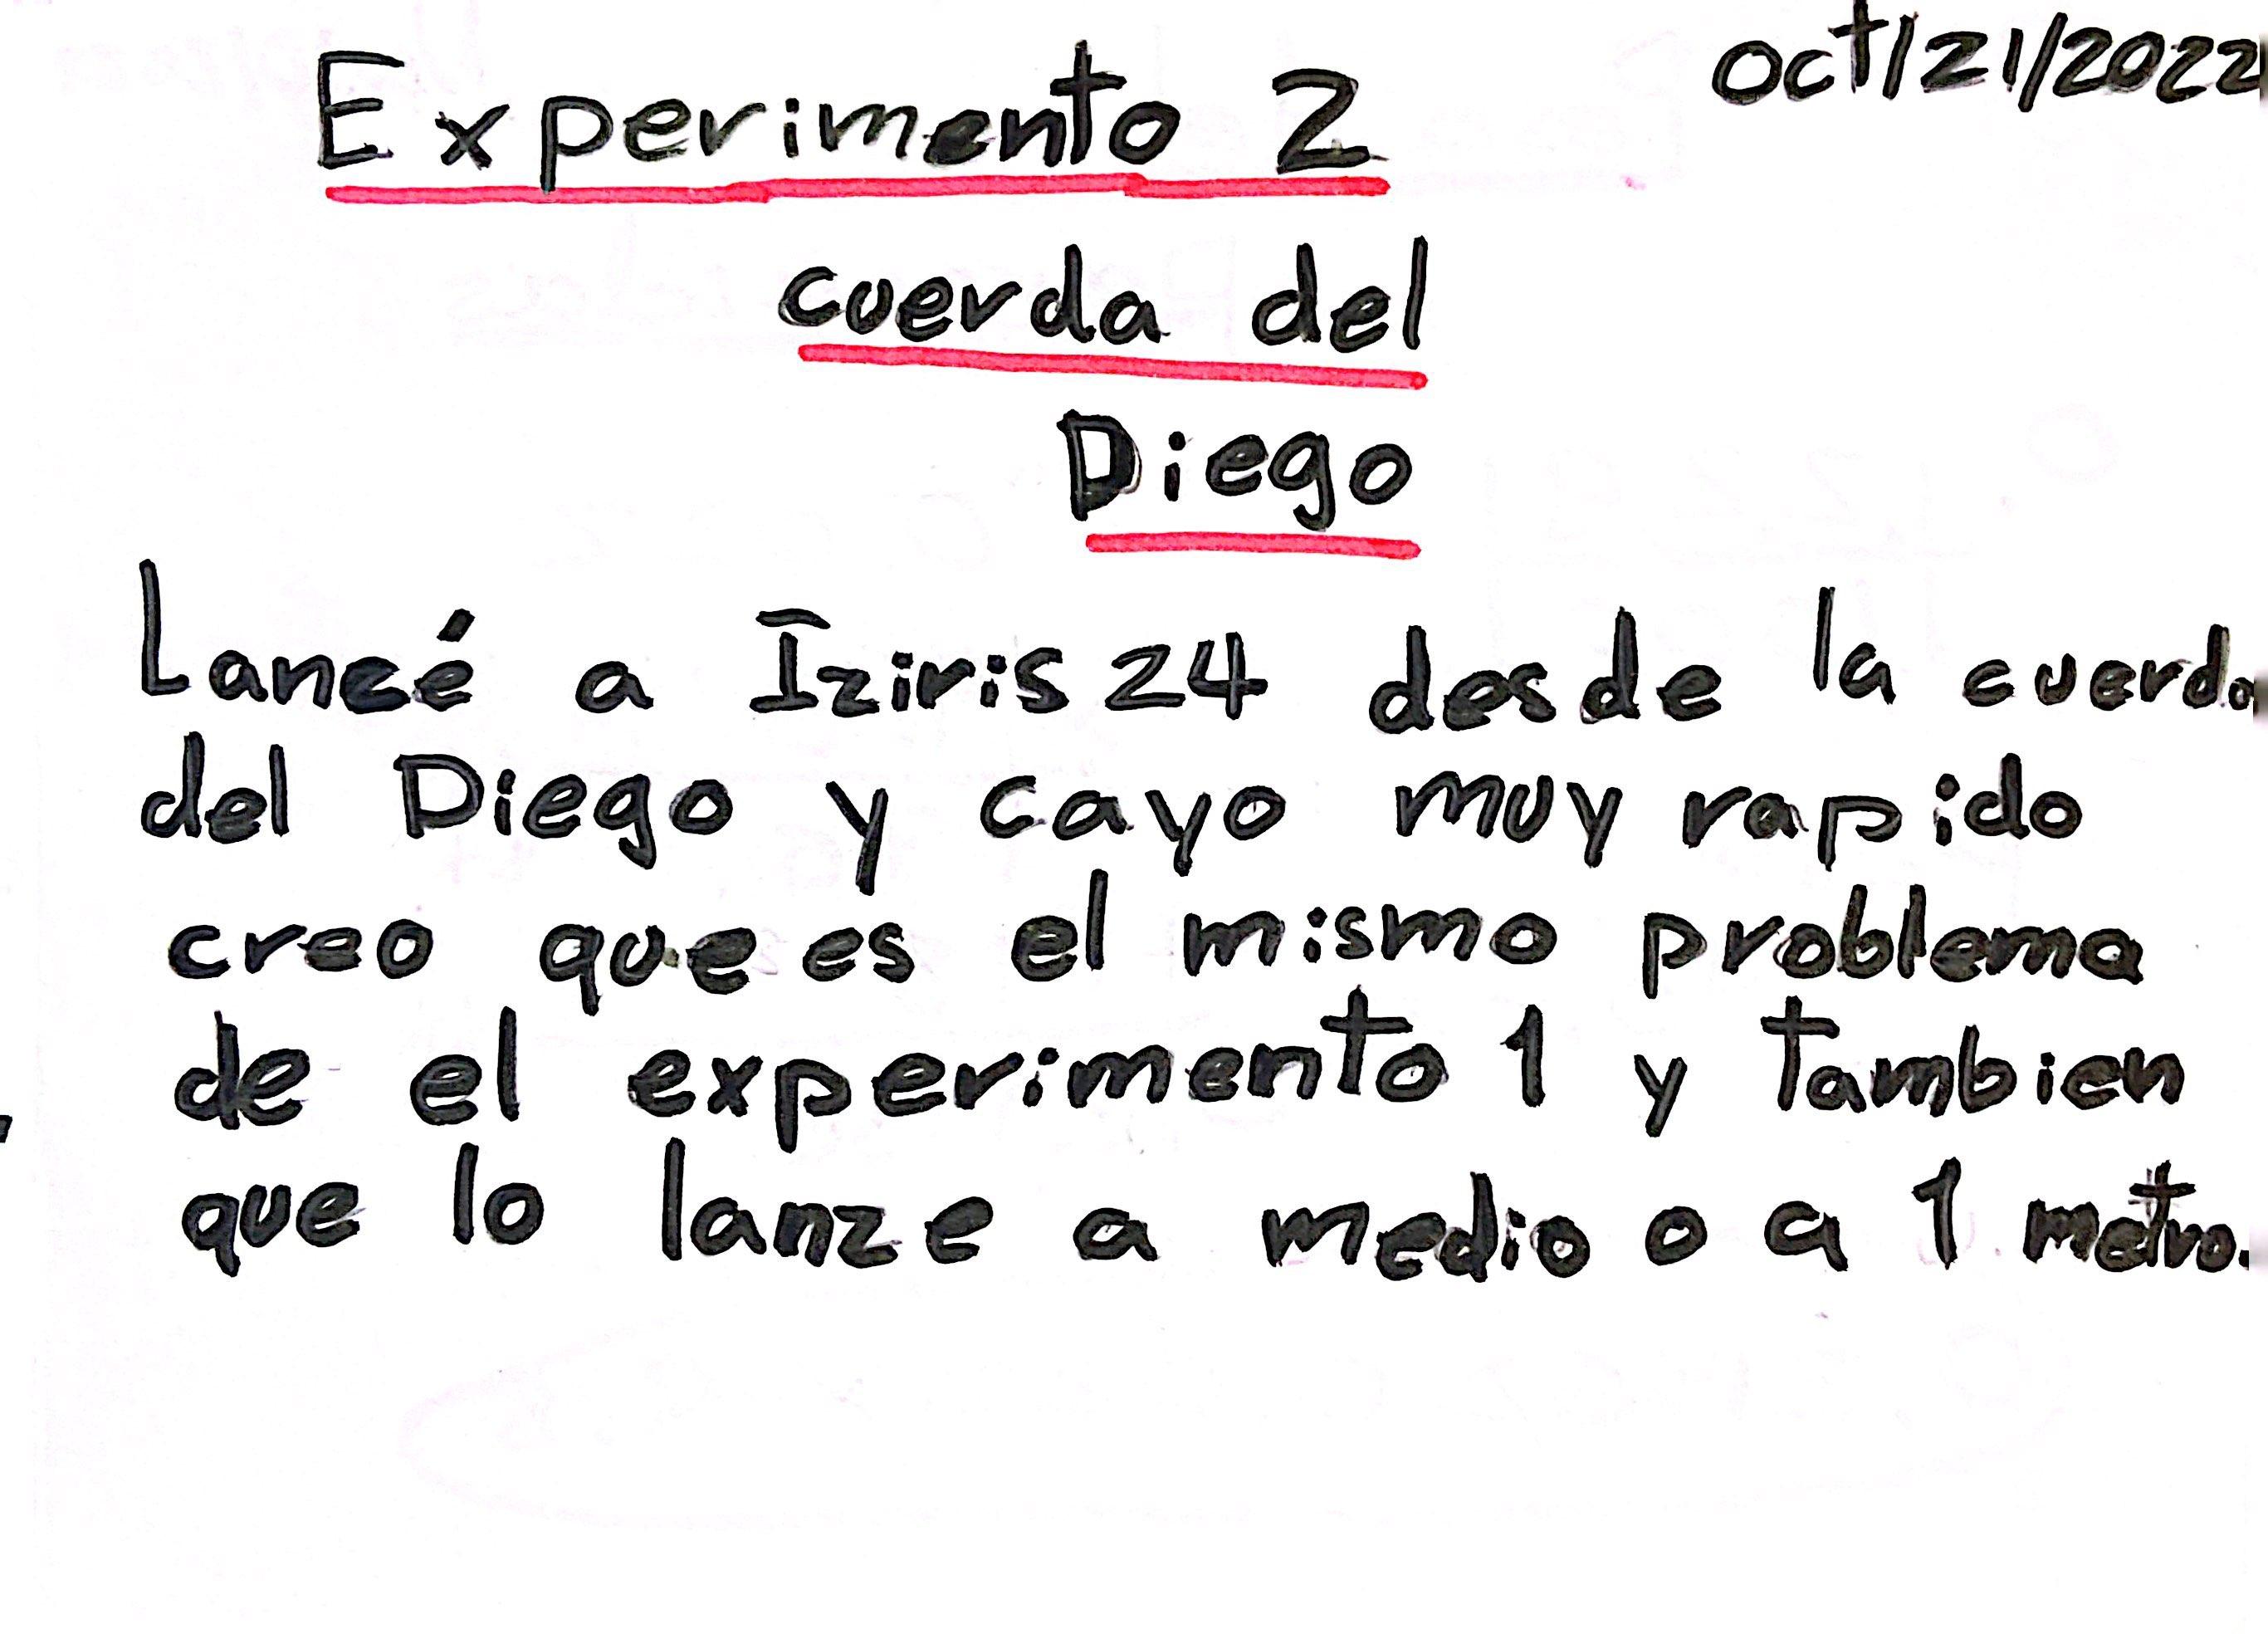 oct/21/2022
Experimento 2
cuerda del
Diego
Lancé a Iziris 24 desde la cuerda
del Diego y cayo muy rapido
creo que es el mismo problema
de el experimento 1 y tambien
que lo lanze a medio o a 1 metro.